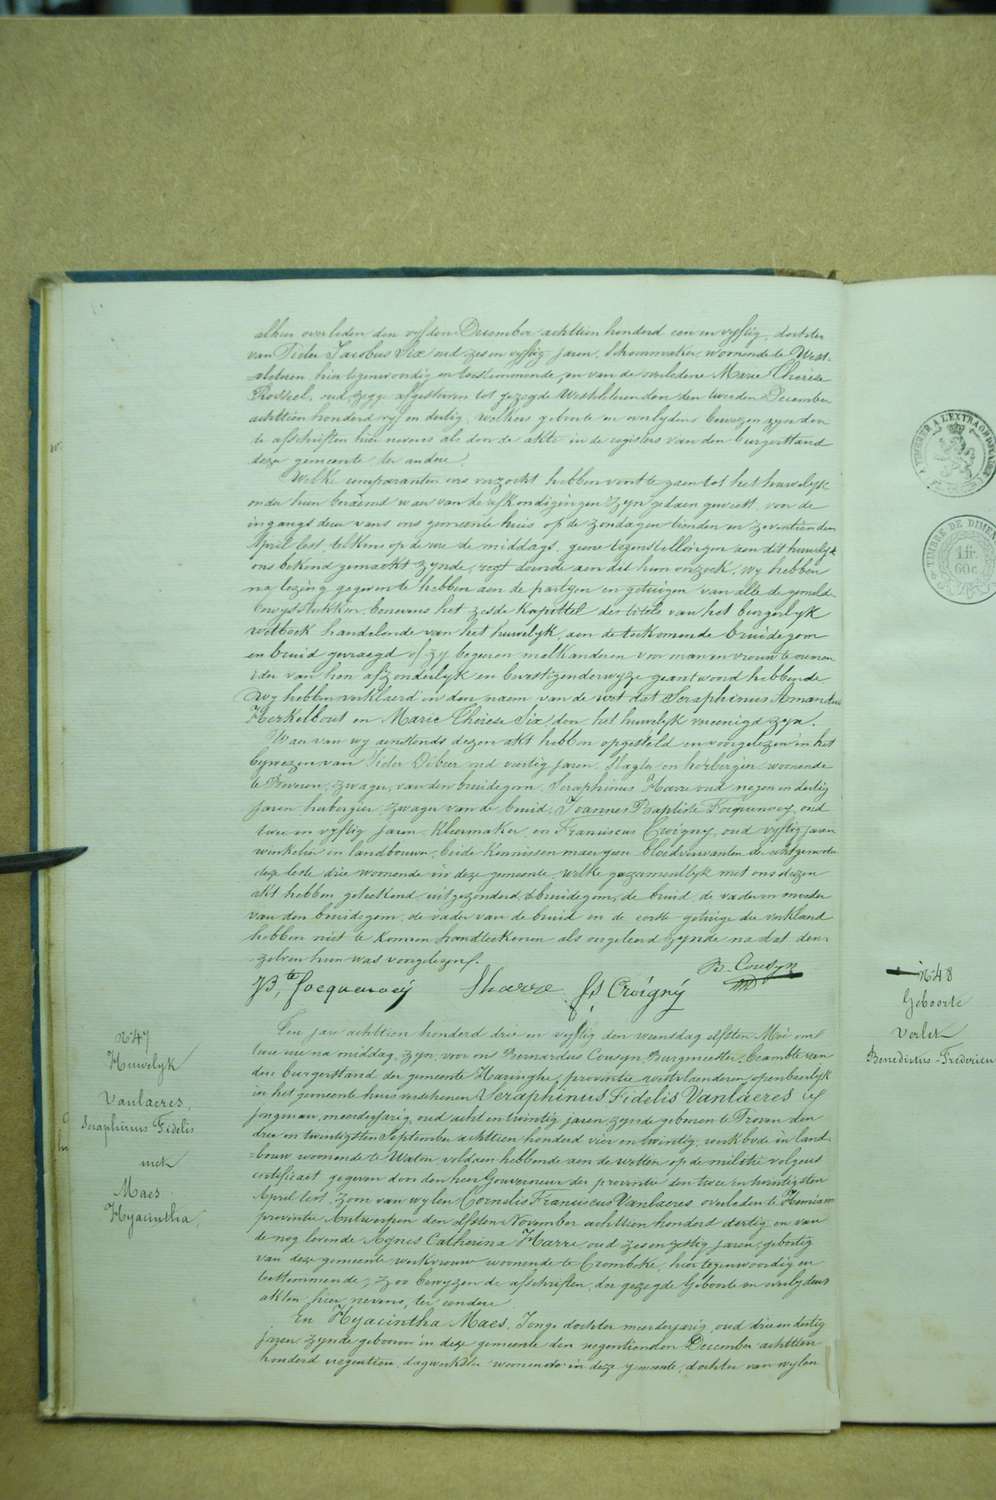 alhier overleden den vyfden December achttien honderd een en vyftig, dochter
van Pieter Jacobus Six oud zes en vyftig jaren, schoenmaker, woonende te West-
=vleteren, hier tegenwoordig en toestemmende, en van de overledene Marie Therese
oud zegge afgestorven tot gezegde Westvleteren den tweeden December
achttien honderd vyf en dertig, welkers geboorte en overlydens bewezen zyn door
de afschriften hier nevens als door de akte in de registers van den burgerstand
dezer gemeente ter andere.
Welke comparanten ons verzocht hebben voort te gaen tot het huwelyk
onder hun beraemd waer van de afkondigingen zyn gedaen geweest voor de
ingangs deur van ons gemeente huis op de zondagen tienden en zeventienden
April lest, telkens op de ure de middags, geene tegenstellingen aen dit huwelyk
ons bekend gemaekt zynde, regt doende aen dit hun verzoek, wy hebben
na lezing gegeven te hebben aen de partyen en getuigen van alle de gemelde
bewysstukken benevens het zesde kapittel der titels van het burgerlyk
wetboek handelende van het huwelyk, aen de toekomende bruidegom
en bruid gevraegd of zy begeeren malkanderen voor man en vrouw te nemen
ider van hen afzonderlyk en bevestigenderwyze geantwoord hebbende
Wy hebben verklaerd in den naem van de wet dat Seraphinus Amandus
Kerkelbout en Marie Therese Six door het huwelyk vereenigd zyn.
Waer van wy aenstonds dezen akt hebben opgesteld en voorgelezen in het
bywezen van Pieter oud veertig jaren, en herbergier woonende
te Proven, zwager van den bruidegom, Seraphinus Harre oud negen en dertig
jaren herbergier, zwager van de bruid, Joannes Baptiste Jocquewoey, oud
twee en vyftig jaren Kleermaker, en Franciscus Croigny, oud vyftig jaren
winkelier en landbouwer, beide kennissen maer geen bloedverwanten der echtgenoten
deze leste drie woonende in deze gemeente, welke gezamentlyk met ons dezen
akt hebben geteekend uitgezonderd de bruidegom, de bruid, de vader en moeder
van den bruidegom, de vader van de bruid en de eerste getuige die verklaerd
hebben niet te konnen handteekenen als ongeleerd zynde na dat den-
zelven hun was voorgelezen.
B. Cousyn
J Bte Jocquewoey   S harre   Fs Croigny
N° 47
Huwelyk
Vanlaeres,
Seraphinus Fidelis
met
Maes
Hyacintha,
Ten jare achttien honderd drie en vyftig den woensdag elfsten Mei om
twee ure na middag, zyn, voor ons Bernardus Cousyn Burgmeester, beambte van
den burgerstand der gemeente Haringhe, provintie westvlaenderen, openbaerlyk
in het gemeente huis verschenen Seraphinus Fidelis Vanlaeres
Jongman, meerderjarig, oud acht en twintig jaren, zynde geboren te Proven den
drie en twintigsten September achttien honderd vier en twintig, werkbode in land-
=bouw woonende te Waton, voldaen hebbende aen de wetten op de militie volgens
certificaet gegeven door den heer Gouverneur der provintie den twee en twintigsten
April lest, zoon van wylen Cornelis Franciscus Vanlaeres overleden te
provintie Antwerpen den elfsten November achttien honderd dertig en van
de nog levende Agnes Catherina Harre oud zes en zestig jaren, gebortig
van deze gemeente werkvrouw woonende te Crombeke, hier tegenwoordig en
toestemmende, zoo bewyzen de afschriften der gezegde Geboorte en overlydens
akten, hier nevens, ter andere
En Hyacintha Maes, Jonge dochter meerderjarig, oud drie en dertig
jaren zynde geboren in deze gemeente den negentienden December achttien
honderd negentien, dagwerkster woonende in deze gemeente, dochter van wylen
N° 48
Geboorte
Verlet
Benedictus-Fredericus
A TIMBRER A L'EXTRAORDINAIRE
TIMBRE DE DIMEN
1 fr.
60 c.